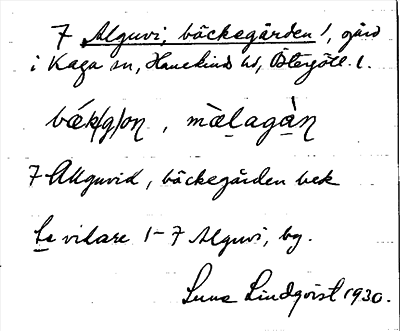 7 Alguvi, bäckegården!, gård
i Kaga sn, Hanekinds hd, Östergötl. l.
bǽk/g/on, mæ̀lagàn
7 Allguvid, bäckegården bek
Se vidare 1-7 Alguvi, by.
Sune Lindqvist 1930.